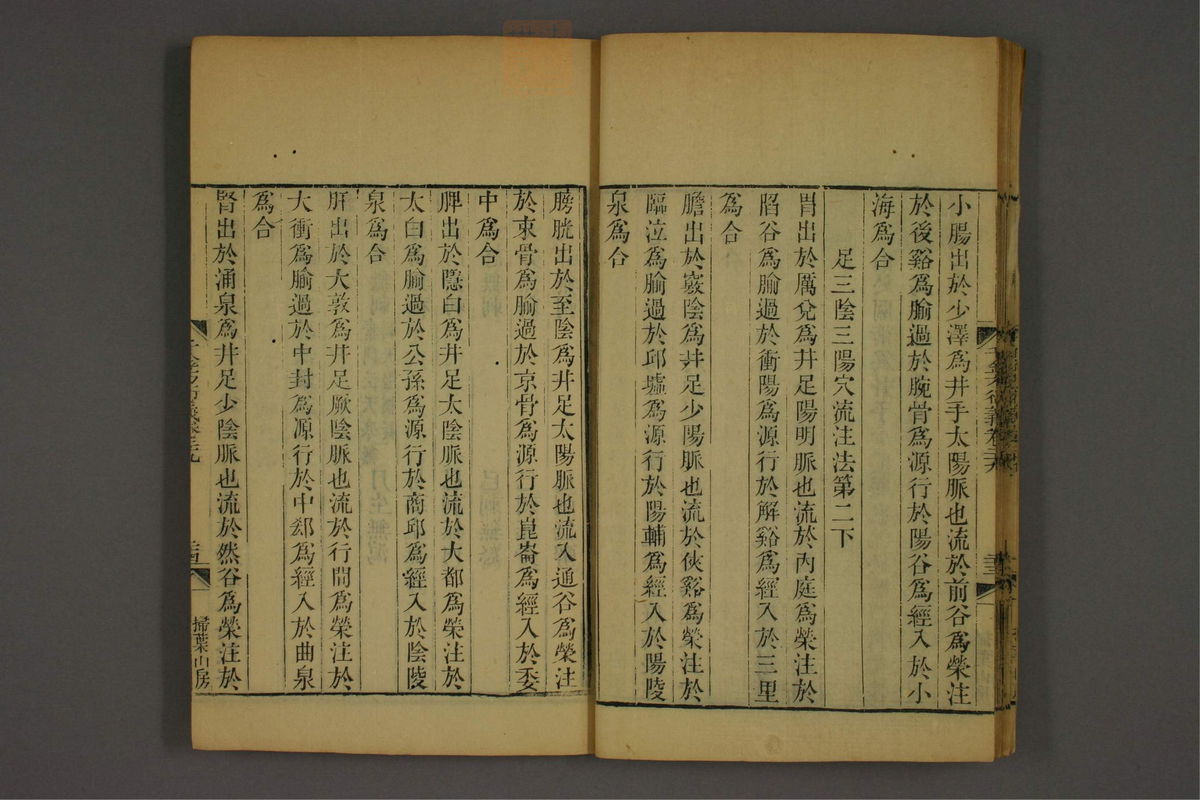 小腸出於少澤爲井手太陽脈也流於前谷爲滎注
於後谿爲腧過於腕骨爲源行於陽谷爲經入於小
海爲合
足三陰三陽穴流注法第二下
胃出於厲兌爲井足陽明脈也流於內庭爲滎注於
陷谷爲腧過於衝陽爲源行於解谿爲經入於三里
爲合
膽出於竅陰爲井足少陽脈也流於俠谿爲滎注於
臨泣爲腧過於邱墟爲源行於陽輔爲經入於陽陵
泉爲合
膀胱出於至陰爲井足太陽脈也流入通谷爲滎注
於束骨爲腧過於京骨爲源行於崑崙爲經入於委
中爲合
脾出於隱白爲井足太陰脈也流於大都爲滎注於
太白爲腧過於公孫爲源行於商邱爲經入於陰陵
泉爲合
肝出於大敦爲井足厥陰脈也流於行間爲滎注於
大衝爲腧過於中封爲源行於中郄爲經入於曲泉
爲合
腎出於涌泉爲井足少陰脈也流於然谷爲滎注於
掃葉山房